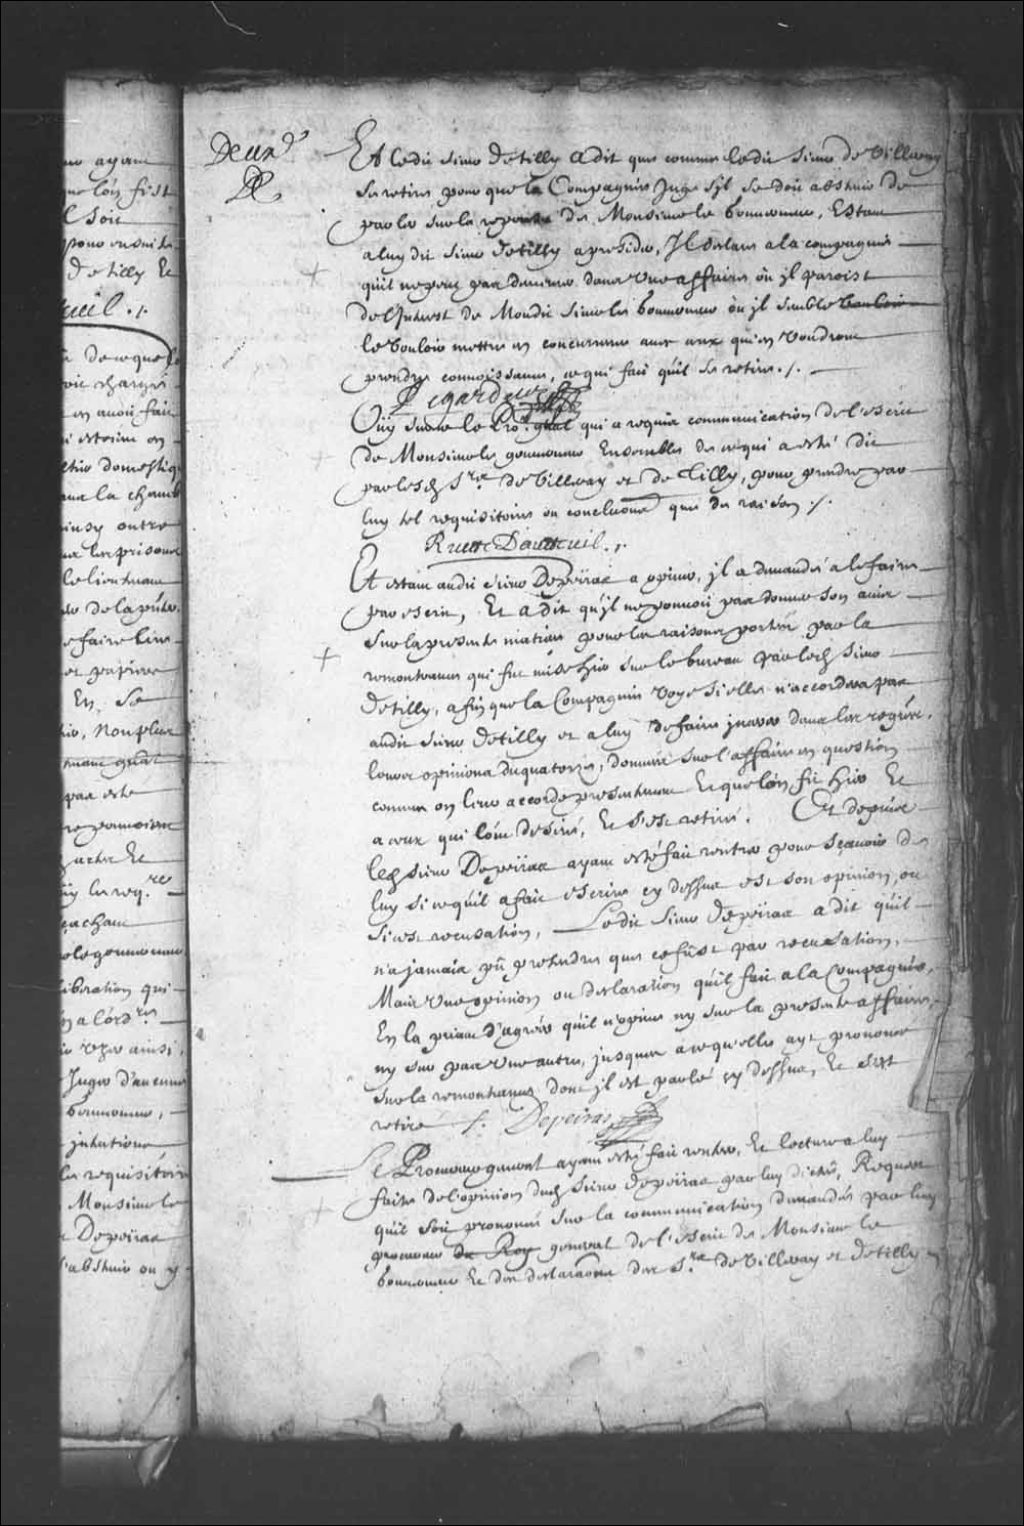 no ayant
que lon fist
Et Soit
pour ensuite
de tilly Et
teüil ./.
de ce que le
voir chargé
en avoir fait
domestiq
que la chamb
ainsy outre
les prisons
le lieutenant
de faire lire
et papiers
En, Se
Non plus
tenant gñal
par este
ne pouvoient
les req.re
sachant
Le gouverneur
liberation qui
ainsi,
Juger d'aucune
Gouverneur,
les requisitoire
Monsieur le
Depeiras
s'abstenir ou
Deux
Et Ledit sieur de tilly a dit que comme ledit sieur de Villeray
se retire pour que la Compagnie Juge s'jl se doit abstenir de
parler sur la reponse de Monsieur le Gouverneur, Estant
a luy dit sieur de tilly a presider, Jl declare a la compagnie
qu'il ne peut pas demeurer dans Une affaire où jl paroist
de l'Jnterest de Mondit sieur le Gouverneur où jl semble
le Vouloir mettre en concurrence avec ceux qui en Voudront
prendre connoissance, ce qui fait qu'il se retire ./.
Legardeur
Ouy sur ce le Pro.r gñal qui a requis communication de l'escrit
de Monsieur le gouverneur Ensemble de ce qui a esté dit
par lesd. S.rs de Villeray et de Tilly, pour prendre par
luy tel requisitoire ou conclusions que de raison ./.
Ruette Dauteuil ./.
Et estant audit sieur Depeiras a opiner, jl a demandé a le faire
par escrit, Et a dit qu'jl ne pouvoit pas donner son avis
sur la presente matiere pour les raisons portées par la
remontrance qui fut mise hier sur le bureau par led. sieur
de tilly, afin que la Compagnie Voye si elle n'accordera pas
audit sieur de tilly et a luy de faire jnserer dans les registres
leurs opinions du quatorze, du mesme sur l'affaire en question
comme on leur accorde presentement Et que lon fit hier Et
a ceux qui l'ont desiré, Et s'est retiré. Et depuis
led. sieur Depeiras ayant esté fait rentrer pour sçavoir de
luy si ce qu'il a fait escrire cy dessus est son opinion, ou
si c'est recusation, Ledit sieur Depeiras a dit qu'il
n'a jamais pû pretendre que ce fust par recusation,
Mais Une opinion ou declaration qu'il fait a la Compagnie,
En la priant d'agreer qu'il n'opine ny sur la presente affaire,
ny sur pas Une autre, jusques a ce qu'elle ayt prononcé
sur la remontrance dont jl est parlé cy dessus, Et s'est
retiré ./. Depeiras
Le Procureur general ayant esté fait rentrer, Et lecture a luy
faite de l'opinion dud. sieur Depeiras par luy dictée, Requiert
qu'il soit prononcé sur la communication demandée par luy
procureur du Roy general de l'escrit de Monsieur le
Gouverneur Et des declaraõns des S.rs de Villeray et de tilly